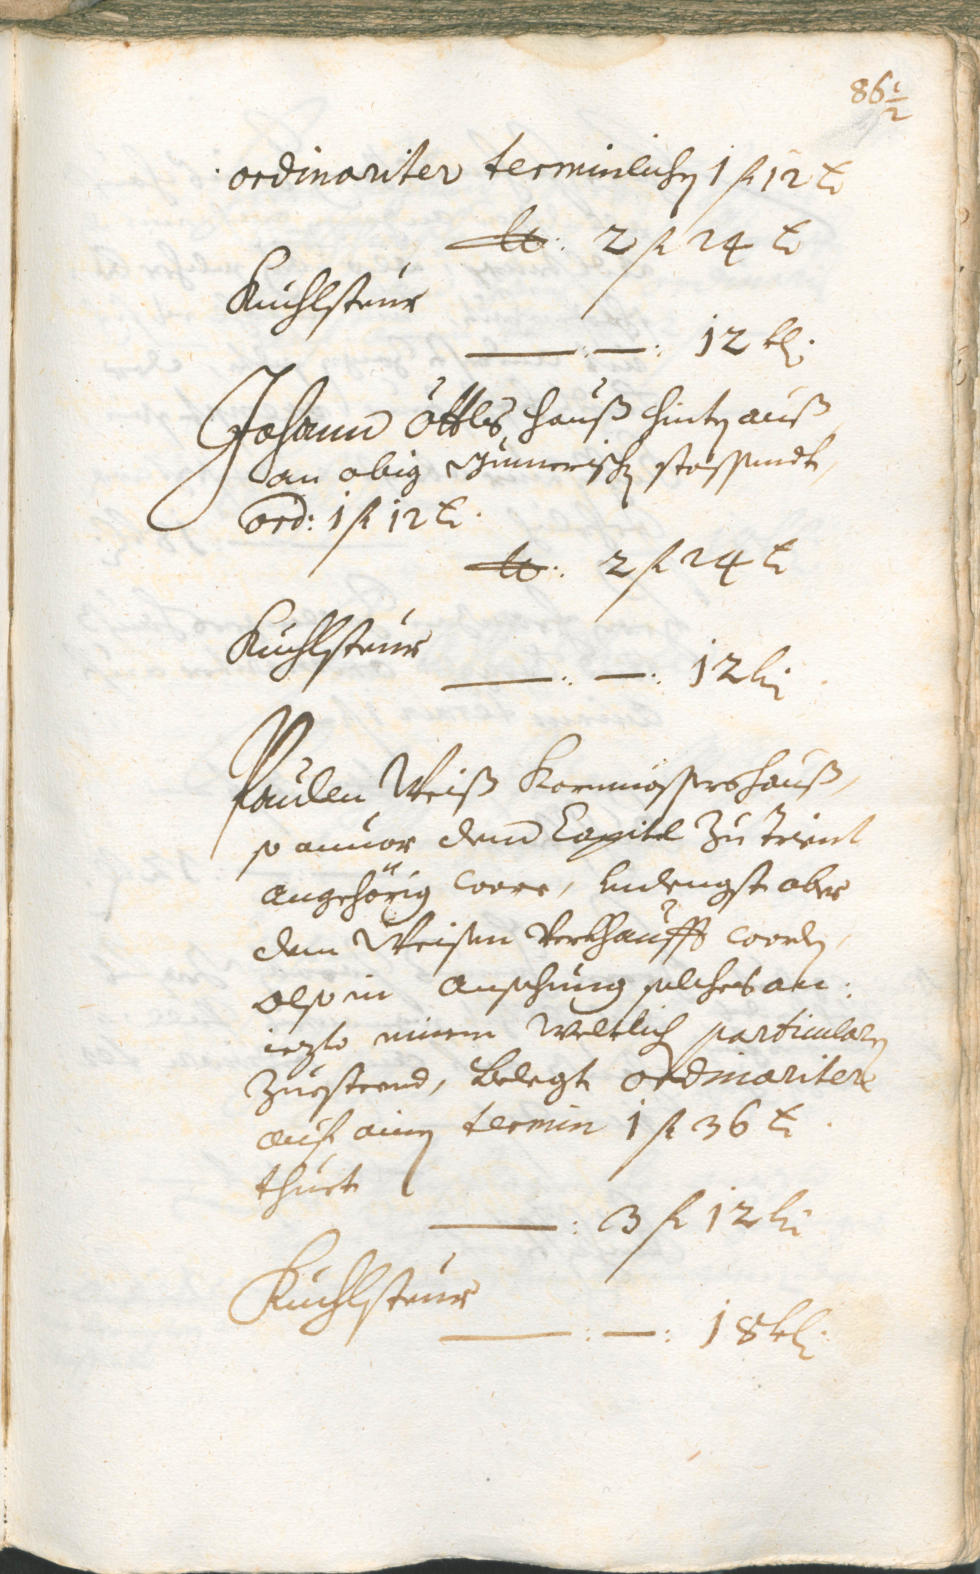 86 1/2
ordinariter terminlichen 1 fl 12 kr
tt: 2 fl 24 kr
Kuchlsteur
12 kr:
Johann Öttls hauß hintenauß
an obig stossendt,
ord: 1 fl 12 kr.
tt: 2 fl 24 kr
Kuchlsteur
12 kr
Paulen Weiß Kornmessershauß,
so anuor dem Capitel zu Trient
angehörig ware, aber
dem Weisen verkhaufft worden,
also in Ansehung solches an:
iezto einem weltlich particularn
zuesteend, belegt ordinariter
auf ainen termin 1 fl 36 kr
thuet
3 fl 12 kr
Kuchlsteur
18 kr: